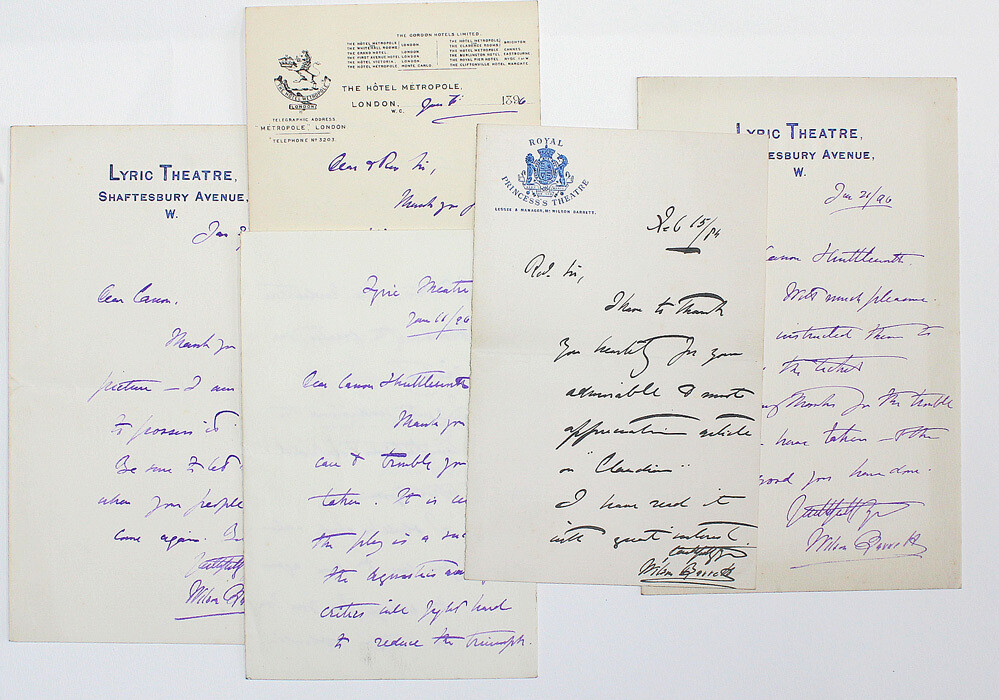 LYRIC THEATRE,
SHAFTESBURY AVENUE,
W.
Jan
Dear Canon,
Thank you
picture – I am
to possess it
Be sure to let
when your people
come again.
faithfully
Wilson Ba
THE GORDON HOTELS LIMITED.
THE HOTEL METROPOLE, LONDON
THE WHITEHALL ROOMS, LONDON
THE GRAND HOTEL LONDON
THE FIRST AVENUE HOTEL, LONDON
THE HOTEL VICTORIA, LONDON.
THE HOTEL METROPOLE, MONTE CARLO.
THE HOTEL METROPOLE, BRIGHTON
THE CLARENCE ROOMS, BRIGHTON
THE HOTEL METROPOLE, CANNES.
THE BURLINGTON HOTEL, EASTBOURNE
THE ROYAL PIER HOTEL, RYDE I.W.
THE CLIFTONVILLE HOTEL, MARGATE.
THE HOTEL METROPOLE
LONDON
THE HÔTEL METROPOLE,
LONDON, Jan 6 1896
W.C.
TELEGRAPHIC ADDRESS
"METROPOLE", LONDON
TELEPHONE Nº 3203.
Dear & Rev Sir,
Thank you f
Lyric Theatre
Jan 16/96
Dear Canon Shuttleworth
Thank you
care & trouble you
taken. It is
the play is a suc
the agnostics
critics will fight hard
to reduce the triumph.
ROYAL
PRINCESS'S THEATRE
LESSEE & MANAGER, Mr WILSON BARRETT.
Feb 15/84
Rev. Sir,
I have to thank
you heartily for your
admirable & most
appreciative article
on "Claudian"
I have read it
with great interest.
faithfully yrs
Wilson Barrett
LYRIC THEATRE,
TESBURY AVENUE,
W.
Jan 21/96
Canon Shuttleworth.
With much pleasure.
instructed them to
the ticket
Thanks for the trouble
have taken – & the
good you have done.
Faithfully yrs
Wilson Barrett